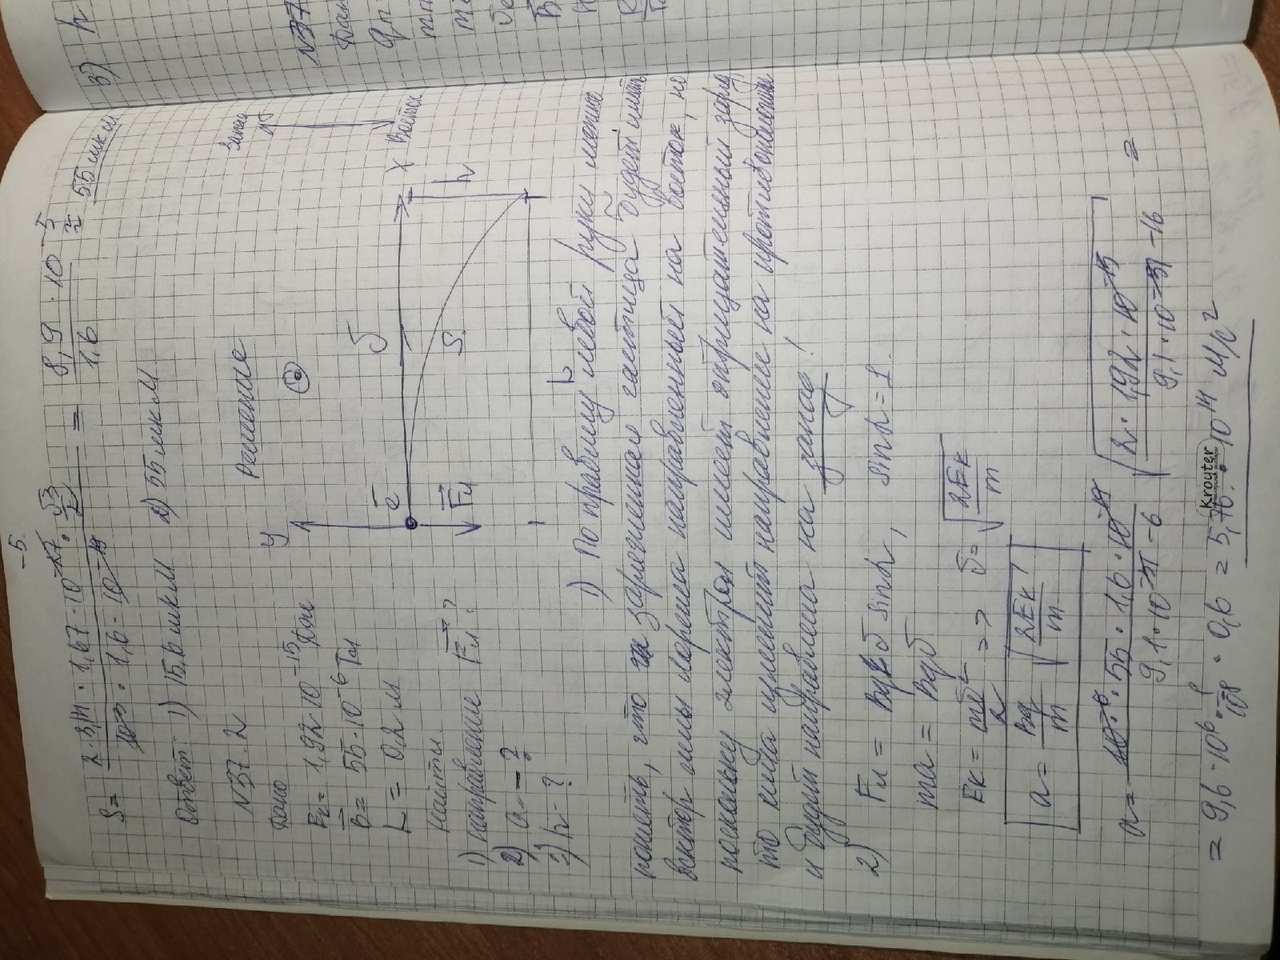 S = 2·3,14·1,67·10⁻²⁷·√3/2 / 100·1,6·10⁻¹⁹ = 8,9·10⁻⁵ / 1,6 · √3/2 55 мкм
Ответ: 1) 15,6 мкм 2) 55 мкм
N37.2
Дано Решение
Ek = 1,92·10⁻¹⁵ Дж
B = 55·10⁻⁶ Тл
L = 0,2 м
Найти
1) направление Fл?
2) a - ?
3) h - ?
y
e⁻
Fл
S
L
h
X
Запад
Восток
1) По правилу левой руки можно
понять, что заряженная частица будет иметь
вектор силы Лоренса направленный на восток, но
поскольку электрон имеет отрицательный заряд,
то сила изменит направление на противоположное
и будет направлена на запад!
2) Fл = Bqυ sinα, sinα = 1
ma = Bqυ
Ek = mυ²/2 => υ = √(2Ek/m)
a = Bq/m √(2Ek/m)
a = 10⁻⁶·55·1,6·10⁻¹⁹ / 9,1·10⁻³¹ √(2·1,92·10⁻¹⁵ / 9,1·10⁻³¹) =
= 9,6·10⁶·10⁸·0,6 = 5,76·10¹⁴ м/с²
Krouter
3) h
N37